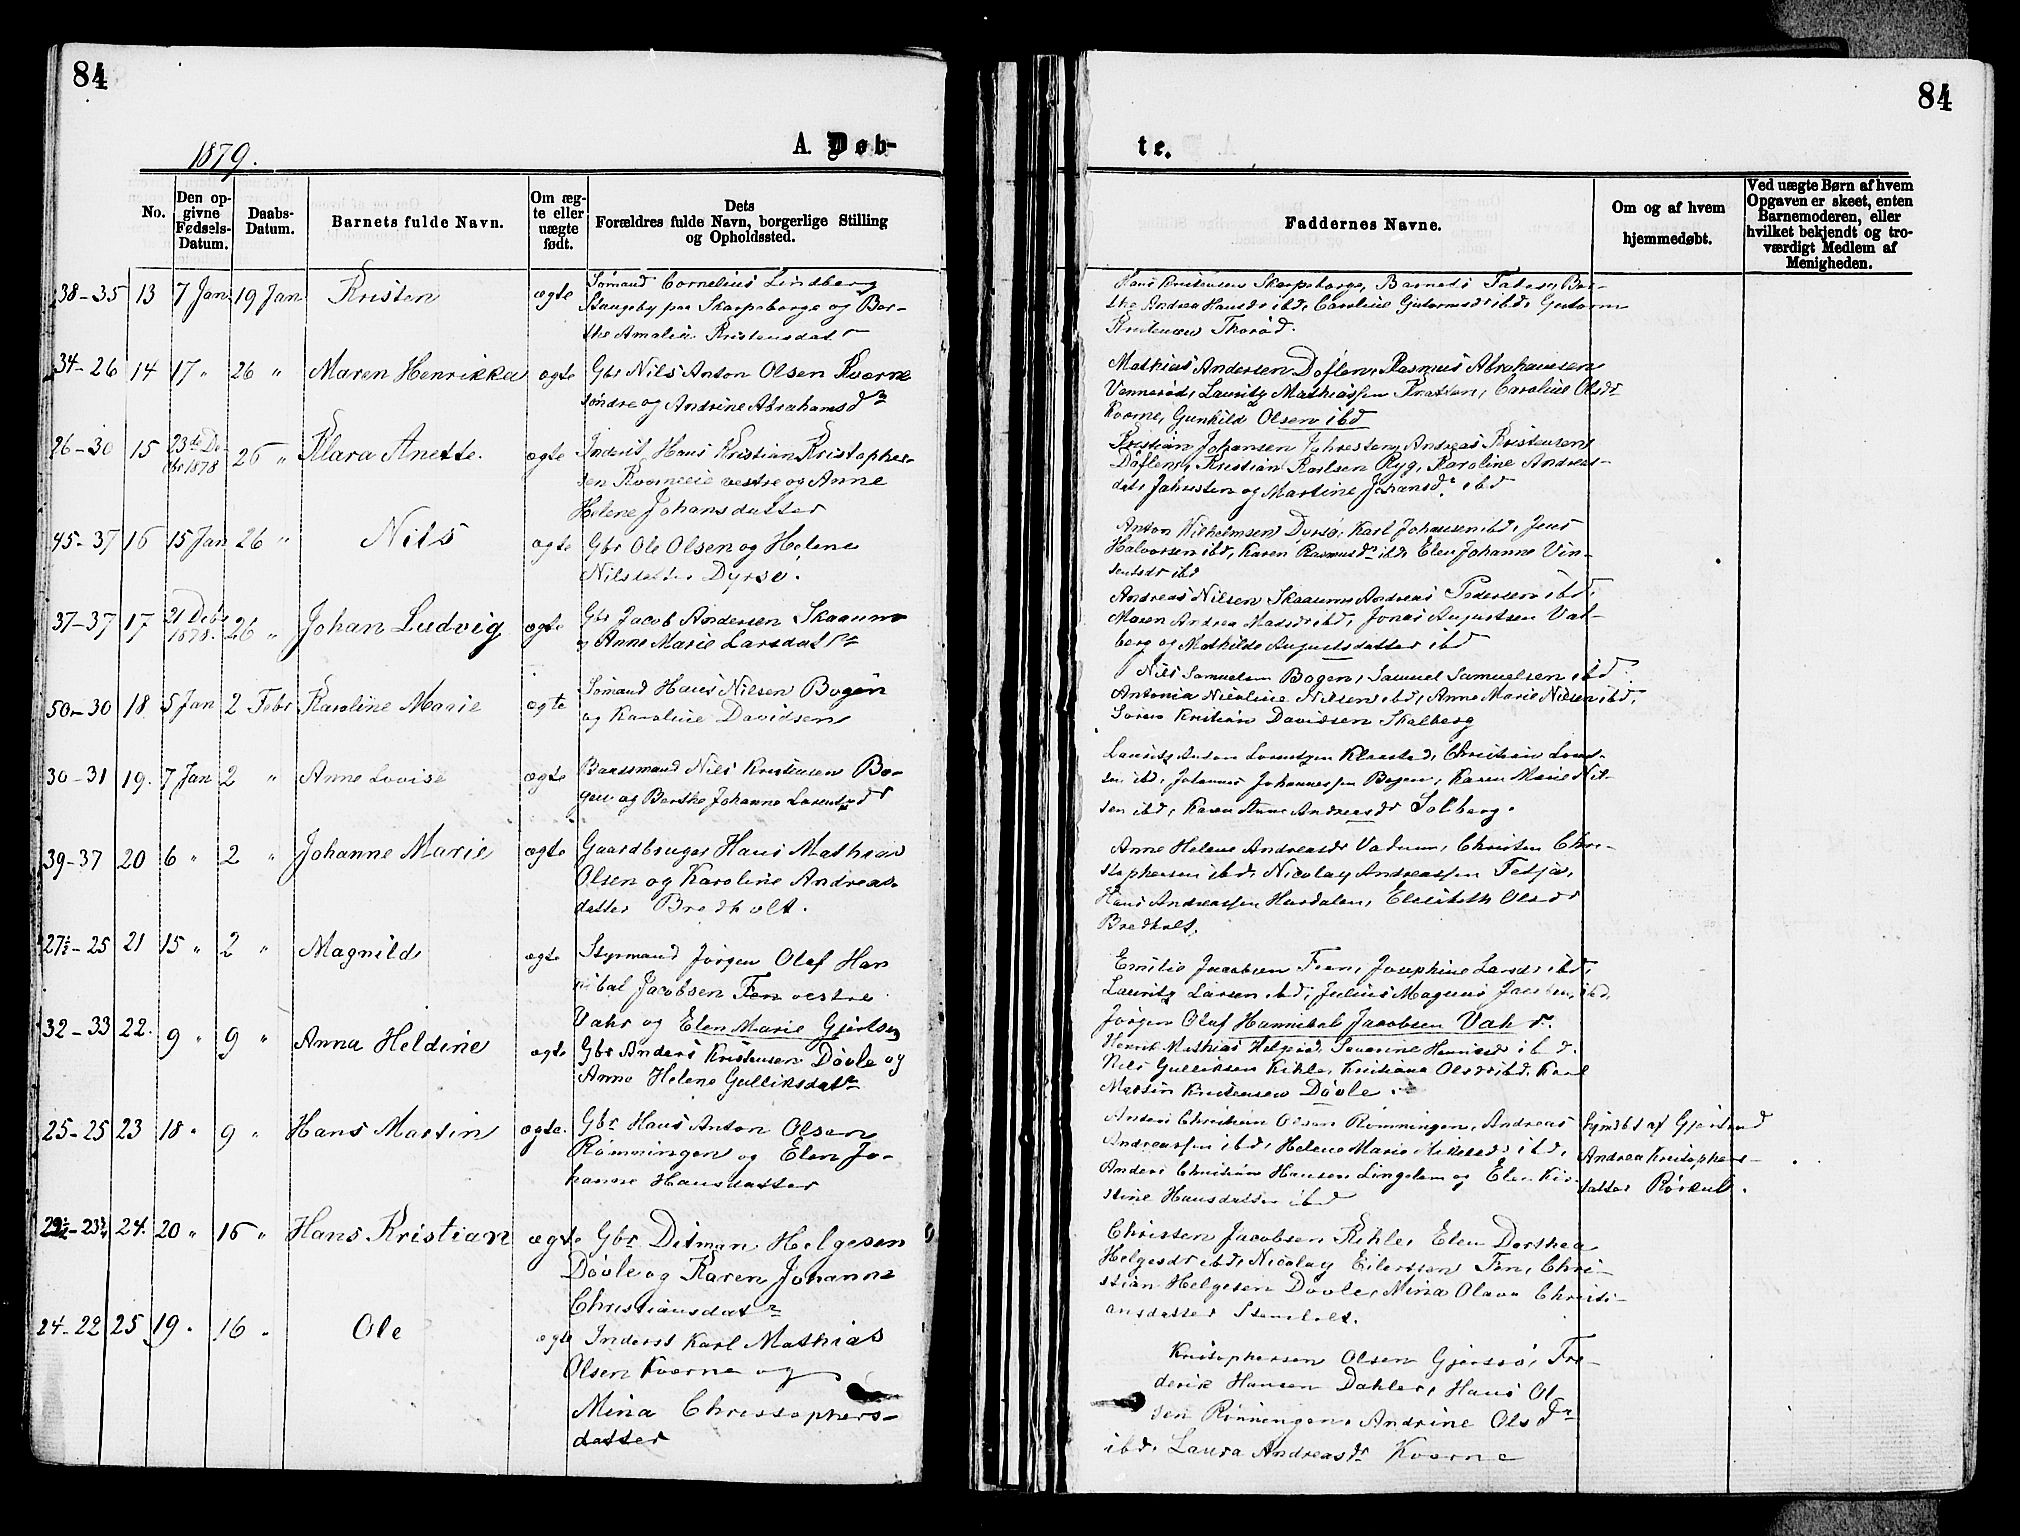 84
84
1879.
A. Døb-
te.
No.
Den op-
givne
Fødsels-
Datum.
Daabs-
Datum.
Barnets fulde Navn.
Om æg-
te eller
uægte
født.
Dets
Forældres fulde Navn, borgerlige Stilling
og Opholdssted.
Faddernes Navne.
Om og af hvem
hjemmedøbt.
Ved uægte Børn af hvem
Opgaven er skeet, enten
Barnemoderen, eller
hvilket bekjendt og tro-
værdigt Medlem af
Menigheden.
38-35 13 7 Jan 19 Jan Kristen ægte Sømand Cornelius Lindberg
Haugeby paa Skarpeborge og Ber-
the Amalie Kristensdatr
Hans Kristensen Skarpeborge, Barnets Fader, Ber-
the Andrea Hansdr ibd, Caroline Gutormsdr ibd, Gutorm
Kristensen Thorød.
34-26 14 17 " 26 " Maren Henrikka ægte Gbr Nils Anton Olsen Kverne
søndre og Andrine Abrahamsdr
Mathias Andersen Døflen, Rasmus Abrahamsen
Vennerød, Lauritz Mathiassen, Caroline Olsdr
Kverne, Gunhild Olsen ibd
26-30 15 23de De-
cbr 1878 26 " Klara Anette. ægte Inderst Hans Kristian Kristopher-
sen Kverneeie vestre og Anne
Helene Johansdatter
Kristian Johansen Jahresten, Andreas Kristensen
Døflen, Kristian Karlsen Ryg, Karoline Andreas-
datr Jahresten og Martine Johansdr ibd
45-37 16 15 Jan 26 " Nils ægte Gbr Ole Olsen og Helene
Nilsdatter Dyrsø.
Anton Wilhelmsen Dyrsø, Karl Johansen ibd, Jens
Halvorsen ibd, Karen Rasmusdr ibd, Elen Johanne Vin-
sentsdr ibd
37-37 17 21 Debr
1878. 26 " Johan Ludvig ægte Gbr Jacob Andersen Skaaum
og Anne Marie Larsdatr
Andreas Nilsen Skaaum, Andreas Pedersen ibd,
Maren Andrea Madsdr ibd, Jonas Augustsen Val-
berg og Mathilde Augustsdatter ibd
50-30 18 5 Jan 2 Febr Karoline Marie ægte Sømand Hans Nilsen Bogen
og Karoline Davidsen
Nils Samuelsen Bogen, Samuel Samuelsen ibd
Antonia Nicoline Nilsen ibd, Anne Marie Nilsen ibd,
Søren Kristian Davidsen Skalberg
30-31 19. 7 Jan 2 " Anne Lovise ægte Baadsmand Nils Kristensen Bo-
gen og Berthe Johanne Lorentsdr
Lauritz Anton Lorentzen Klaastad, Christian Lorent-
sen ibd, Johannes Johannessen Bogen, Karen Marie Nil-
sen ibd, Karen Anne Andreasdr Solberg.
39-37 20 6 " 2 " Johanne Marie ægte Gaardbruger Hans Mathias
Olsen og Karoline Andreas-
datter Bredholt.
Anne Helene Andreasdr Vadum, Christen Chri-
stophersen ibd, Nicolay Andreassen Tetsjø,
Hans Andreassen Hasdalen, Elisabeth Olsdr
Bredholt.
27½-25 21 15 " 2 " Magnild ægte Styrmand Jørgen Olaf Han
nibal Jacobsen Fen vestre
Vahr og Elen Marie Gjertsen
Emilie Jacobsen Fen, Josephine Larsdr ibd,
Lauritz Larsen ibd, Julius Magnus Jacobsen ibd,
Jørgen Olaf Hannibal Jacobsen Vahr.
32-33 22. 9 " 9 " Anna Heldine ægte Gbr Anders Kristensen Døvle og
Anne Helene Gulliksdatr
Henrik Mathias Helgerød, Severine Henriksdr ibd.
Nils Gulliksen Kihle, Kristiane Olsdr ibd, Karl
Martin Kristensen Døvle.
25-25 23 18 " 9 " Hans Martin ægte. Gbr Hans Anton Olsen
Rømmingen og Elen Jo-
hanne Hansdatter
Anders Christian Olsen Rømmingen, Andreas
Andreassen ibd, Helene Marie Mikelsdr ibd,
Anders Christian Hansen Lingelem og Elen Kir-
stine Hansdatter ibd
hjmdbt af Gjertrud
Andrea Kristophers-
datter Rørkul.
24. 20 " 16 " Hans Kristian ægte Gbr Ditman Helgesen
Døvle og Karen Johanne
Christiansdatr
Christen Jacobsen Kihle, Elen Dorthea
Helgesdr ibd, Nicolay Eilertsen Fen, Chri-
stian Helgesen Døvle, Mina Olava Christi-
ansdatter Stenholt.
24-22 25 19 " 16 " Ole ægte Inderst Karl Mathias
Olsen Kverne og
Mina Christophers-
datter
Kristophersen Olsen Gjersø, Fre-
derik Hansen Dahler, Hans Ol-
sen Rønningen, Andrine Olsdr
ibd, Laura Andreasdr Kverne